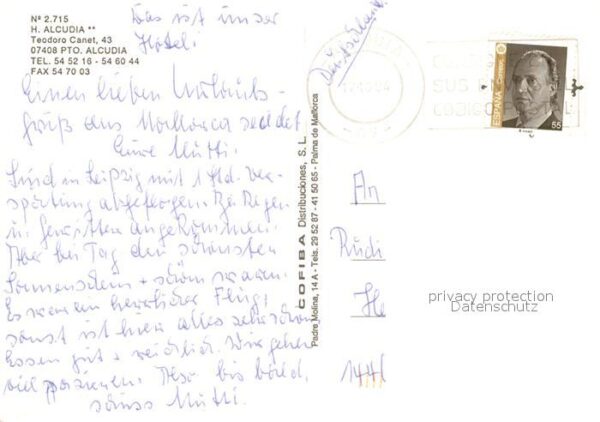 Nº 2.715
H. ALCUDIA **
Teodoro Canet, 43
07408 PTO. ALCUDIA
TEL. 54 52 16 - 54 60 44
FAX 54 70 03
Das ist unser
Hotel!
Einen lieben Urlaubs-
gruß aus Mallorca sendet
Eure Mutti.
Sind in Leipzig mit 1 Std. Ver-
spätung abgeflogen. Bei Regen
u. Gewitter angekommen.
Aber bei Tag den schönsten
Sonnenschein + schön warm.
Es war ein herrlicher Flug,
sonst ist hier alles sehr schön,
Essen gut + reichlich. Wir gehen
viel spazieren. Also bis bald,
Mutti.
COFIBA Distribuciones, S. L.
Padre Molina, 14 A - Tels. 29 52 87 - 41 50 65 - Palma de Mallorca
Deutschland
SUS
CODIGO POSTAL
ESPAÑA
Correos
55
An
Rudi
He
144
privacy protection
Datenschutz